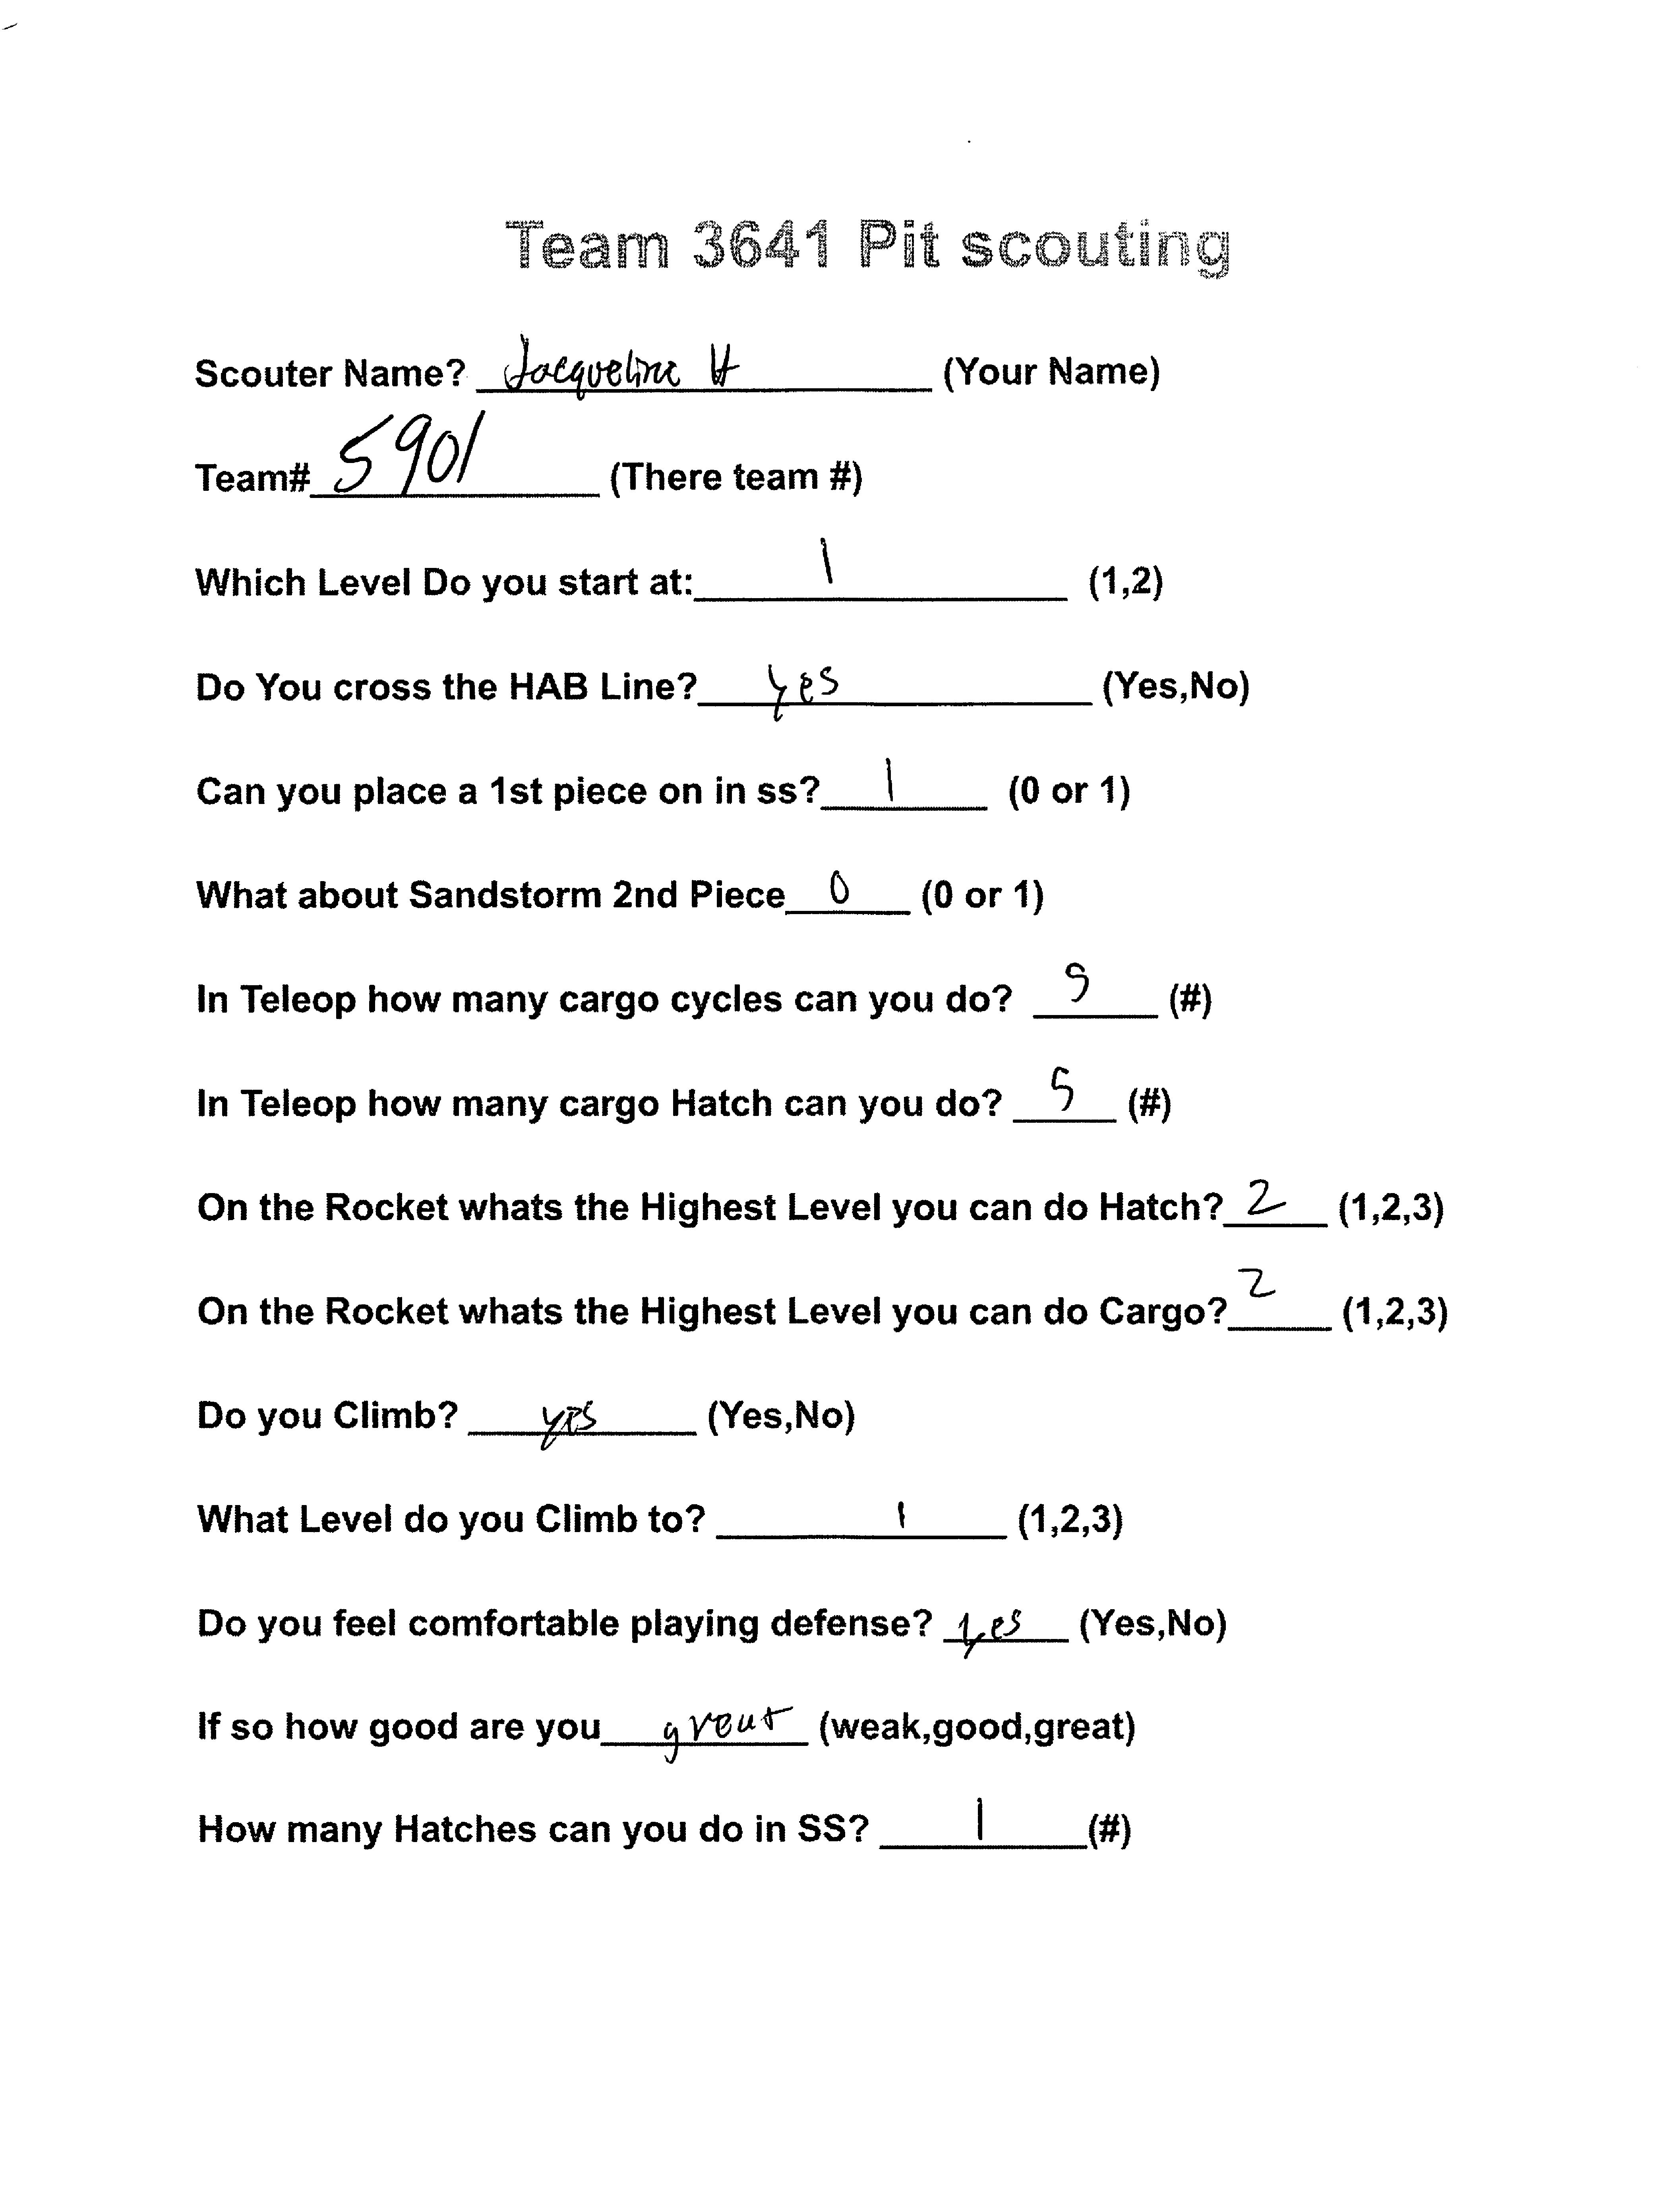 Team 3641 Pit scouting
Scouter Name? Jacqueline H (Your Name)
Team# 5901 (There team #)
Which Level Do you start at: 1 (1,2)
Do You cross the HAB Line? yes (Yes,No)
Can you place a 1st piece on in ss? 1 (0 or 1)
What about Sandstorm 2nd Piece 0 (0 or 1)
In Teleop how many cargo cycles can you do? (#)
In Teleop how many cargo Hatch can you do? 5 (#)
On the Rocket whats the Highest Level you can do Hatch? 2 (1,2,3)
On the Rocket whats the Highest Level you can do Cargo? 2 (1,2,3)
Do you Climb? yes (Yes,No)
What Level do you Climb to? 1 (1,2,3)
Do you feel comfortable playing defense? yes (Yes,No)
If so how good are you great (weak,good,great)
How many Hatches can you do in SS? 1 (#)